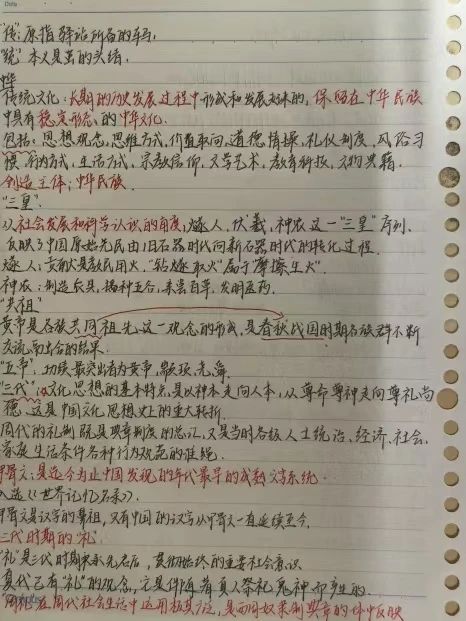 Date
"传":原指驿站所备的车马.
"统"本义是茧的头绪.
中华
传统文化:长期的历史发展过程中形成和发展起来的,保留在中华民族
中具有稳定形态的中华文化.
包括:思想观念,思维方式,价值取向,道德情操,礼仪制度,风俗习
惯,行为方式,生活方式,宗教信仰,文学艺术,教育科技,文物典籍.
创造主体:中华民族.
"三皇"
从社会发展和科学认识的角度:燧人,伏羲,神农这一"三皇"序列.
反映了中国原始先民由旧石器时代向新石器时代的转化过程.
燧人:贡献是教民用火."钻燧取火"属于"摩擦生火".
神农:制造农具,播种五谷,亲尝百草,发明医药.
"共祖"
黄帝是各族共同祖先,这一观念的形成,是春秋战国时期各族群不断
交流而融合的结果.
"五帝":功绩最突出者为黄帝,颛顼,尧,舜.
"三代":文化思想的基本特点是以神本走向人本,从尊命尊神走向尊礼尚
德.这是中国文化思想史上的重大转折.
周代的礼制既是典章制度的总汇,又是当时各级人士统治,经济,社会.
家庭生活条件各种行为规范的准绳.
甲骨文:是迄今为止中国发现的年代最早的成熟文字系统.
入选《世界记忆名录》.
甲骨文是汉字的鼻祖,只有中国的汉字从甲骨文一直延续至今.
三代时期的"礼"
"礼"是三代时期承先启后,贯彻始终的主要社会意识.
夏代已有"礼"的观念,它是伴随着夏人祭礼鬼神而产生的.
"周礼"在周代社会生活中运用极其广泛,是西周奴隶制典章的集中反映
Campus